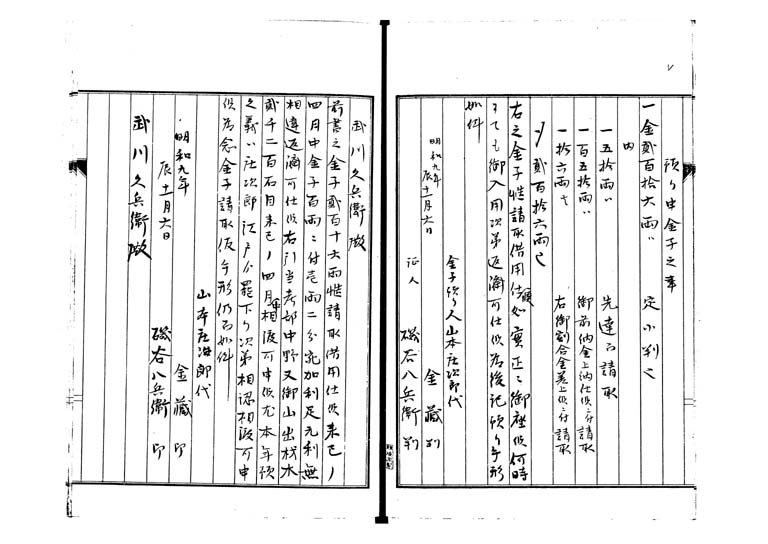 預り申金子之事
一金貳百拾六両ハ　定小判也
内
一五拾両ハ　先達而請取
一百五拾両ハ　御前納金上納仕候ニ付請取
一拾六両也　右御割合金差上候ニ付請取
〆貳百拾六両也
右之金子慥請取借用仕預如実正ニ御座候何時
ニても御入用次第返済可仕候為後記預り手形
如件
明和九年
辰十一月六日
金子預り人山本庄次郎代
金藏判
証人
磯谷八兵衛判
武川久兵衛殿
前書之金子貳百十六両慥請取借用仕候来巳ノ
四月中金子百両ニ付壱両二分宛加利足元利無
相違返済可仕候右引当者部中野又御山出材木
貳千二百石目来巳ノ四月相渡可申候尤本年預
之義ハ庄次郎江戸分罷下り次第相認相渡可申
候為念金子請取仮手形仍而如件
山本庄治郎代
明和九年　金藏印
辰十一月六日
磯谷八兵衛印
武川久兵衛殿